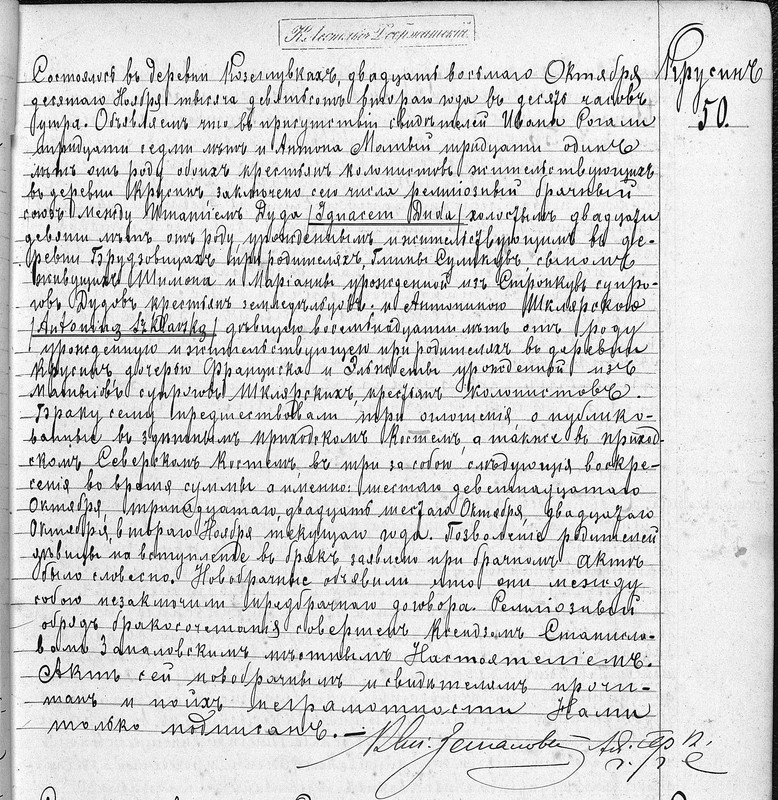 Крусинъ
50.
Состоялось въ деревни Козелувкахъ, двадцать восьмаго Октября
десятаго Ноября тысяча девятьсотъ втораго года въ десять часовъ
утра. Объявляемъ что въ присутствіи свидѣтелей Ивана Рогали
тридцати седми лѣтъ и Антона Матыи тридцати одинъ
лѣтъ отъ роду обоихъ крестьянъ колонистовъ жительствующихъ
въ деревни Крусинъ заключено сего числа религіозный брачный
союзъ между Игнатіемъ Дуда /Ignacem Duda/ холостымъ двадцати
девяти лѣтъ отъ роду урожденнымъ и жительствующимъ въ де-
ревни при родителяхъ, Гмины Сулкувъ сыномъ
живущихъ Шимона и Маріанны урожденной изъ супру-
говъ Дудовъ крестьянъ земледѣльцовъ и Антониною Шклярскою
/Antoniną Szklarską/ дѣвицею восемьнадцати лѣтъ отъ роду
урожденную и жительствующею при родителяхъ въ деревни
Крусинъ дочерью Францишка и Эльжбеты урожденной изъ
супруговъ Шклярскихъ, крестьянъ колонистовъ.
Браку сему предшествовали три оглошенія, о публико-
ванные въ здѣшнемъ приходскомъ Костелѣ, а также въ приход-
скомъ Костелѣ въ три за собою слѣдующія воскре-
сенія во время суммы а именно: шестаго девятнадцатаго
Октября, тринадцатаго, двадцать шестаго Октября, двадцатаго
Октября, втораго Ноября текущаго года. Позволеніе родителей
дѣвицы на вступленіе въ бракъ заявлено при брачномъ актѣ
было словесно. Новобрачные объявили что они между
собою незаключили предбрачнаго договора. Религіозный
обрядъ бракосочетанія совершенъ Ксендзомъ Станисла-
вомъ мѣстнымъ Настоятелемъ.
Актъ сей новобрачнымъ и свидѣтелямъ прочи-
танъ и по ихъ неграмотности Нами
только подписанъ. —